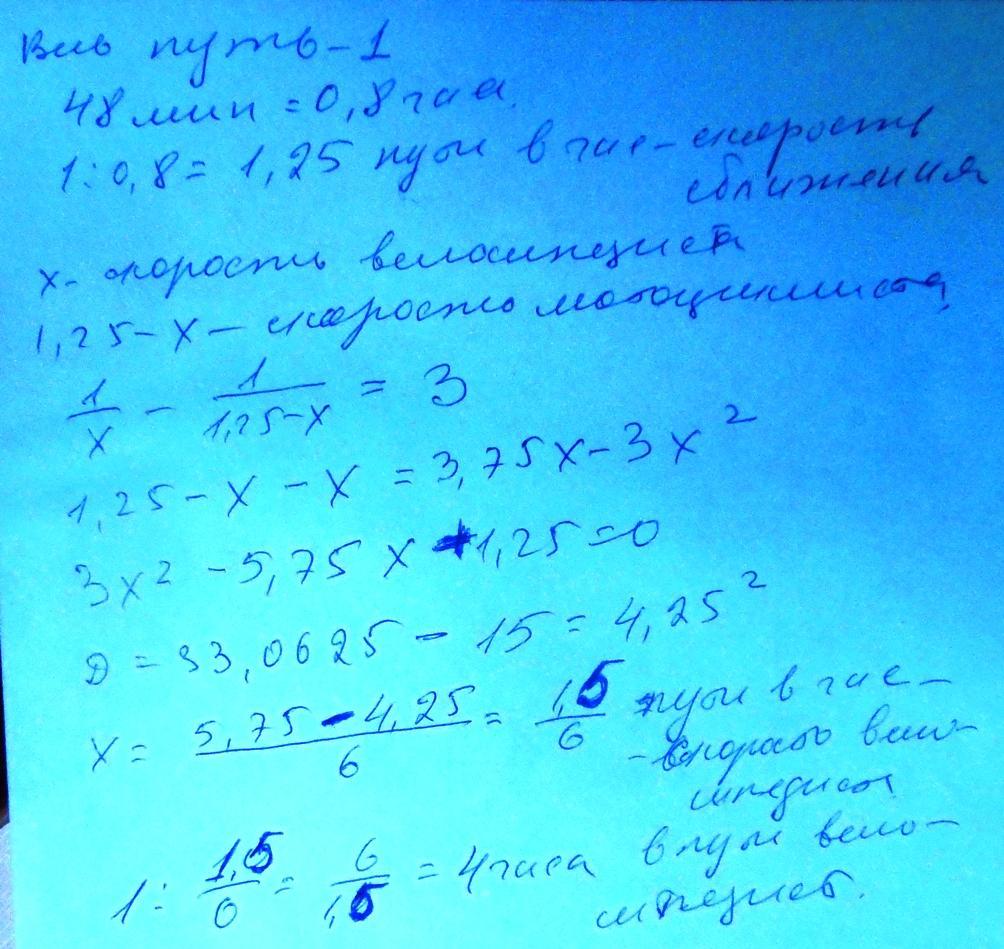 Весь путь – 1
48 мин = 0,8 часа.
1:0,8 = 1,25 пути в час – скорость
сближения
x – скорость велосипедиста
1,25 – x – скорость мотоциклиста
1/x – 1/(1,25–x) = 3
1,25 – x – x = 3,75x – 3x²
3x² – 5,75x + 1,25 = 0
D = 33,0625 – 15 = 4,25²
x = (5,75 – 4,25)/6 = 1,5/6 пути в час –
– скорость вело-
сипедиста
1 : 1,5/6 = 6/1,5 = 4 часа в пути вело-
сипедист.